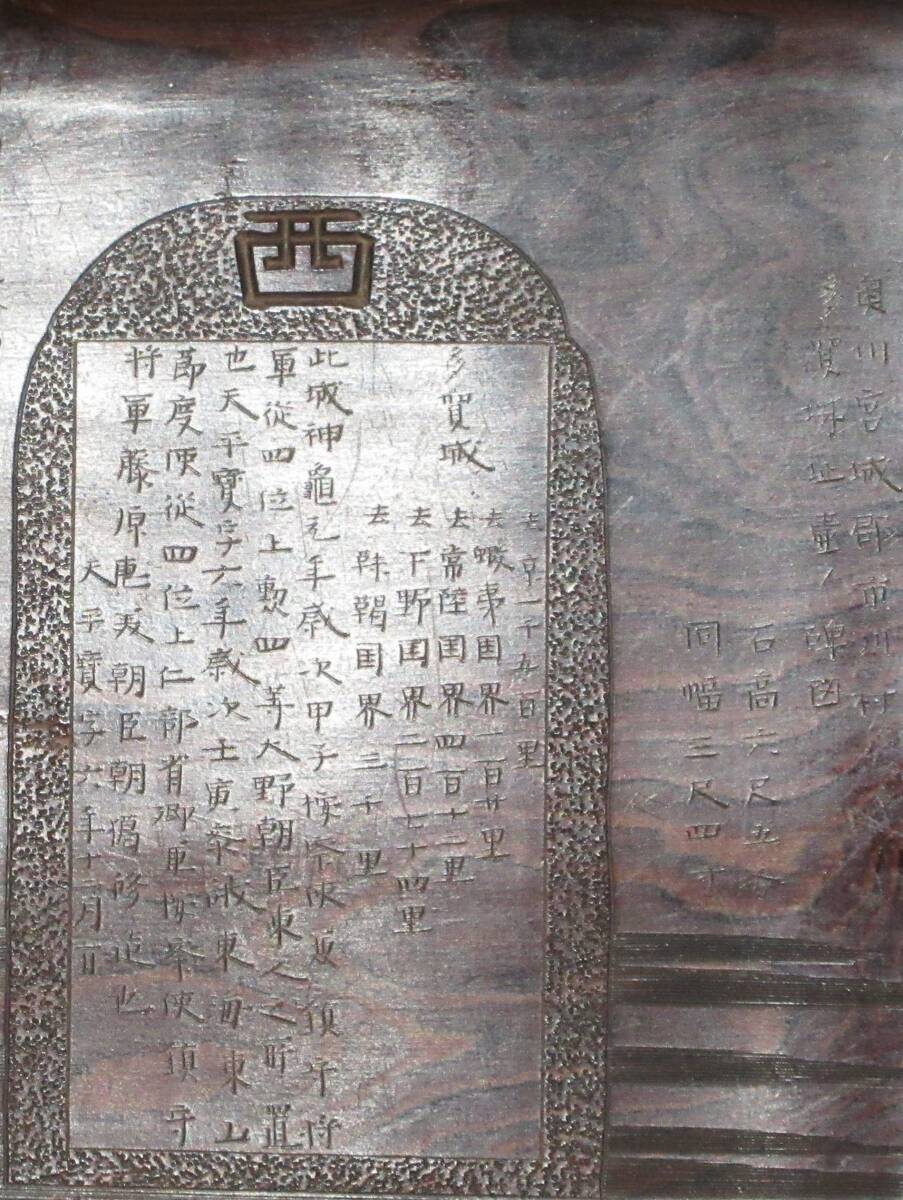 奥州宮城郡市川村
多賀城址壷ノ碑図
石高六尺五寸
同幅三尺四寸
西
去京一千五百里
多賀城
去蝦夷国界一百廿里
去常陸国界四百十二里
去下野国界二百七十四里
去靺鞨国界三千里
此城神龜元年歳次甲子按察使兼鎮守将
軍從四位上勲四等大野朝臣東人之所置
也天平寶字六年歳次壬寅参議東海東山
節度使從四位上仁部省卿兼按察使鎮守
将軍藤原恵美朝臣朝獦修造也
天平寶字六年十二月一日